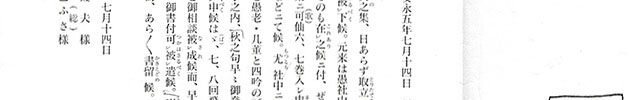 永五年七月十四日
之集、日あらず取立
被下候。元来は愚社中
のも在之候ニ付、ぜ
ニ可仙六、七巻入レ申
どニて候。尤社中ニ
愚老・几董と四吟の
之内、秋之句早々御
申候はゞ、七、八回
御相談被成候而、早
御書付可被遣候。
、あら〱書留候。
七月十四日
夫様
ふさ様